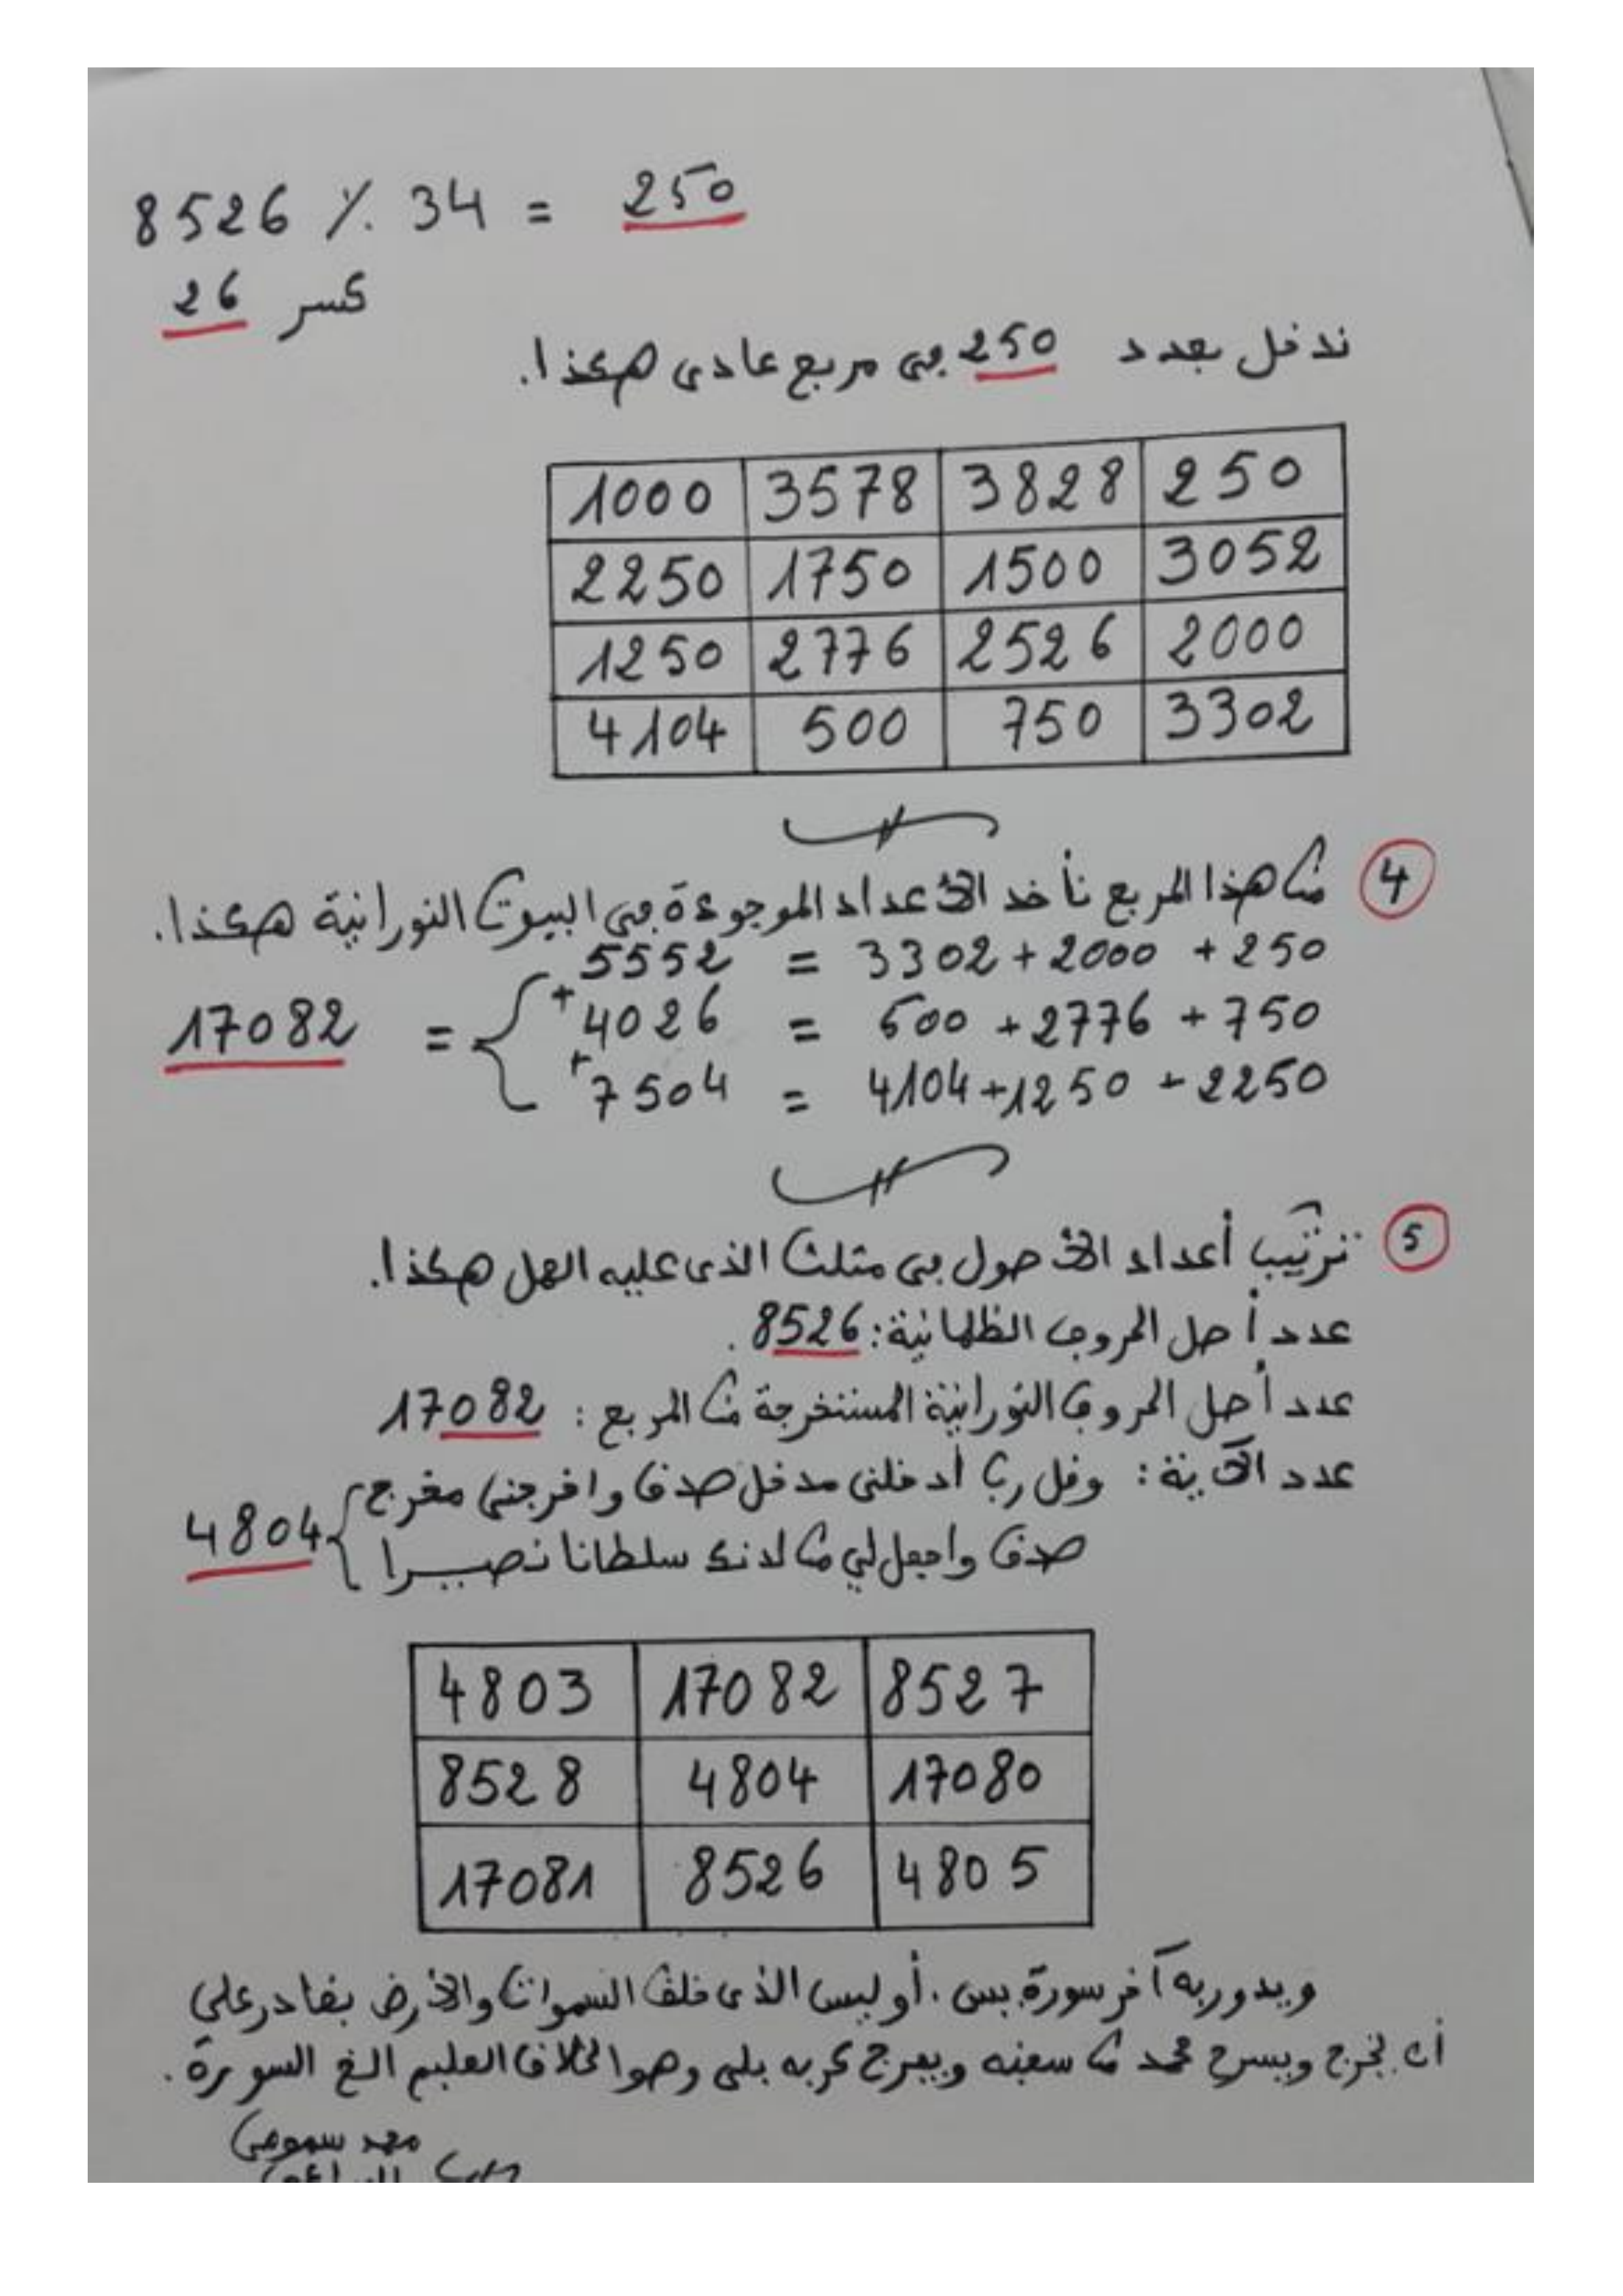 8526 ٪ 34 = 250
كسر 26
ندخل بعدد 250 في مربع عادي هكذا.
1000 3578 3828 250
2250 1750 1500 3052
1250 2776 2526 2000
4104 500 750 3302
4 من هذا المربع نأخد الأعداد الموجودة في البيوت النورانية هكذا.
5552 = 3302 + 2000 + 250
17082 = { + 4026 = 500 + 2776 + 750
+ 7504 = 4104 + 1250 + 2250
5 ترتيب أعداد الأصول في مثلث الذي عليه العمل هكذا.
عدد أصل الحروف الظلمانية: 8526.
عدد أصل الحروف النورانية المستخرجة من المربع: 17082
عدد الآية: وقل رب أدخلني مدخل صدق واخرجني مخرج
صدق واجعل لي من لدنك سلطانا نصيرا } 4804
4803 17082 8527
8528 4804 17080
17081 8526 4805
ويدور به آخر سورة يس. أوليس الذي خلق السموات والأرض بقادر على
أن يخرج ويسرح محمد من سجنه ويفرج كربه بلى وهو الخلاق العليم الخ السورة.